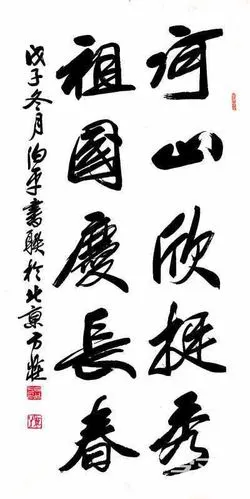 河山欣挺秀
祖國慶長春
戊子冬月泊平書联於北京方莊